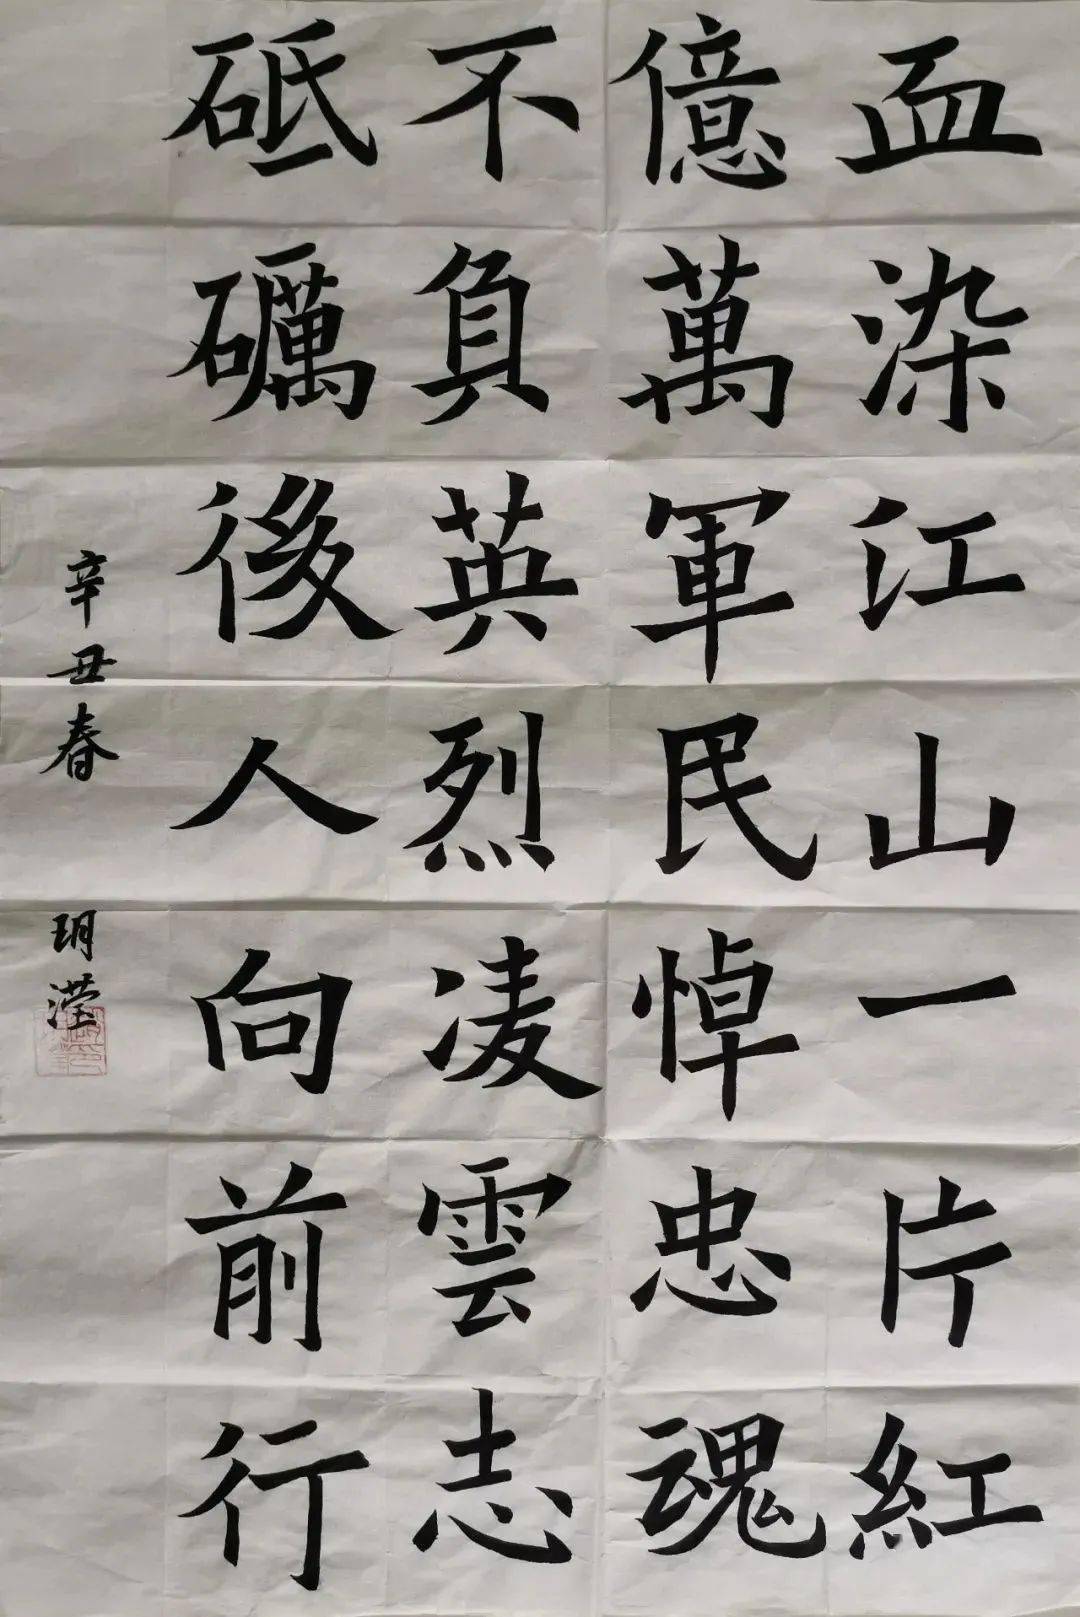 血染江山一片紅
億萬軍民悼忠魂
不負英烈凌雲志
砥礪後人向前行
辛丑春 玥瀅